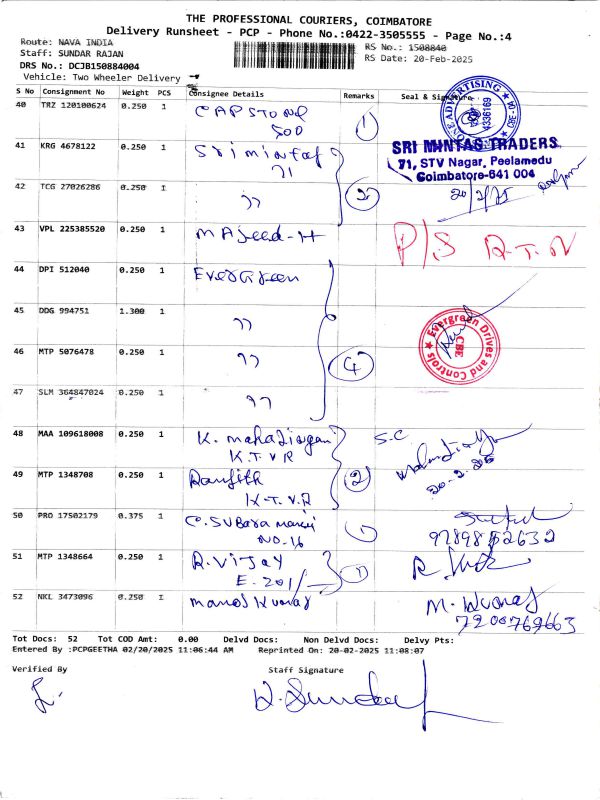 THE PROFESSIONAL COURIERS, COIMBATORE
Delivery Runsheet - PCP - Phone No.:0422-3505555 - Page No.:4
Route: NAVA INDIA
RS No.: 1508840
Staff: SUNDAR RAJAN
RS Date: 20-Feb-2025
DRS No.: DCJB150884004
Vehicle: Two Wheeler Delivery
S No Consignment No Weight PCS Consignee Details Remarks Seal & Signature
40 TRZ 120100624 0.250 1 CAPSTONE 1
500
ADVERTISING CBE-04 4336169
41 KRG 4678122 0.250 1 Sri mintas
71
SRI MINTAS TRADERS
71, STV Nagar, Peelamedu
Coimbatore-641 004
42 TCG 27026286 0.250 1 " 2 20/2/25
43 VPL 225385520 0.250 1 MAJeed-H P/S R.T.N
44 DPI 512040 0.250 1 EVERGreen
45 DDG 994751 1.300 1 "
Evergreen Drives and Controls CBE
46 MTP 5076478 0.250 1 " 4
47 SLM 364847024 0.250 1 "
48 MAA 109618008 0.250 1 K. S.C
K.T.V.R
49 MTP 1348708 0.250 1 Ranjith 2 20.2.25
K.T.V.R
50 PRO 17502179 0.375 1 C.SUBaramani 1
NO-16
51 MTP 1348664 0.250 1 R.VIJAY 1
E.201/
52 NKL 3473096 0.250 1 manoj Kumar M. Kumar
7200769663
Tot Docs: 52 Tot COD Amt: 0.00 Delvd Docs: Non Delvd Docs: Delvy Pts:
Entered By :PCPGEETHA 02/20/2025 11:06:44 AM Reprinted On: 20-02-2025 11:08:07
Verified By
Staff Signature